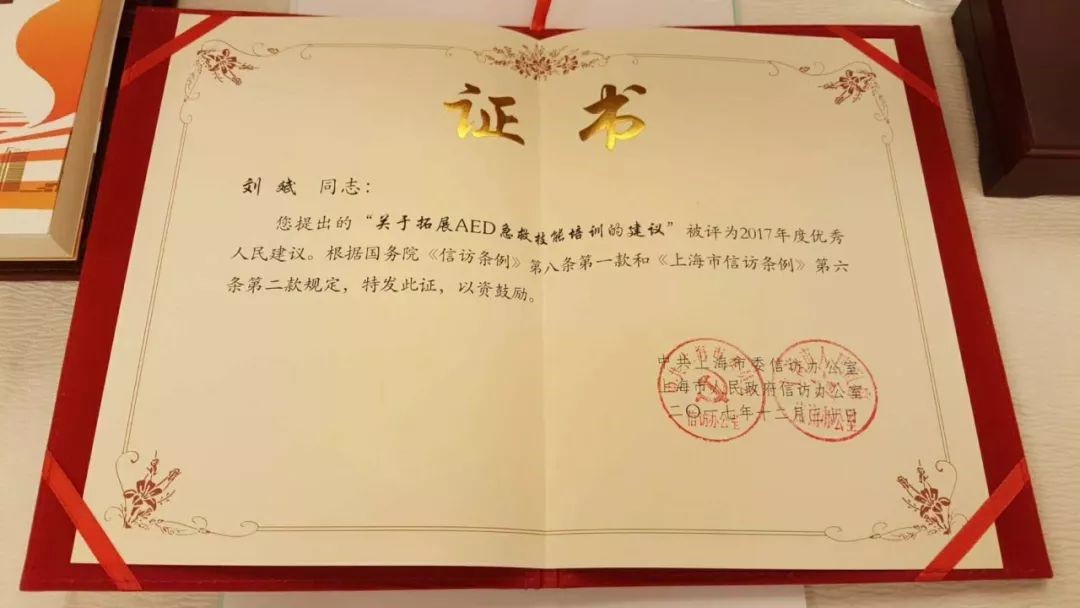 证书
刘斌 同志：
您提出的“关于拓展AED急救技能培训的建议”被评为2017年度优秀
人民建议。根据国务院《信访条例》第八条第一款和《上海市信访条例》第六
条第二款规定，特发此证，以资鼓励。
中共上海市委信访办公室
上海市人民政府信访办公室
二〇一七年十二月二十日
信访办公室